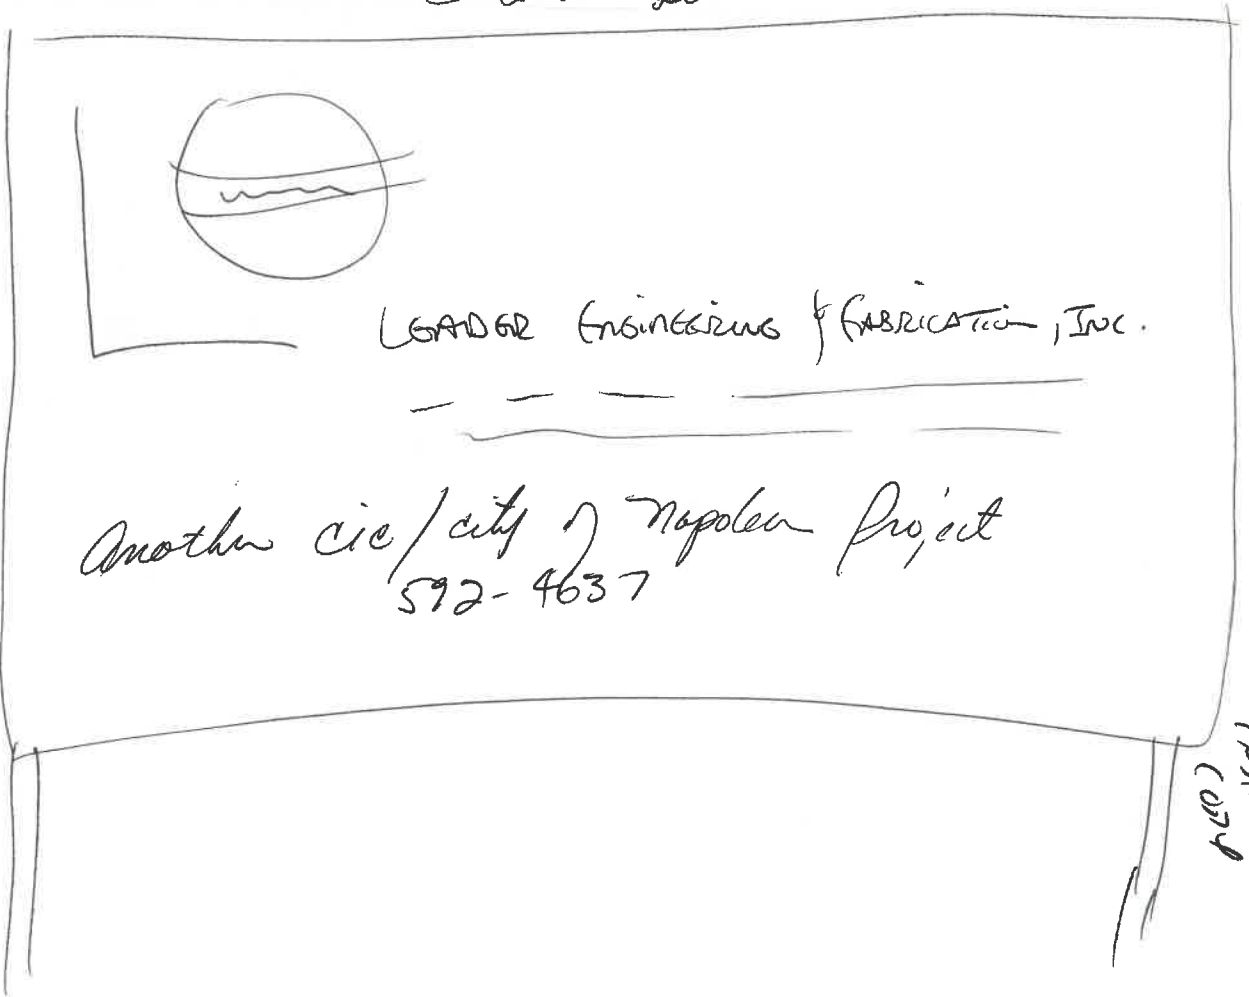 LEADER ENGINEERING & FABRICATION, INC.
Another cic/city of Napoleon Project
592-4637